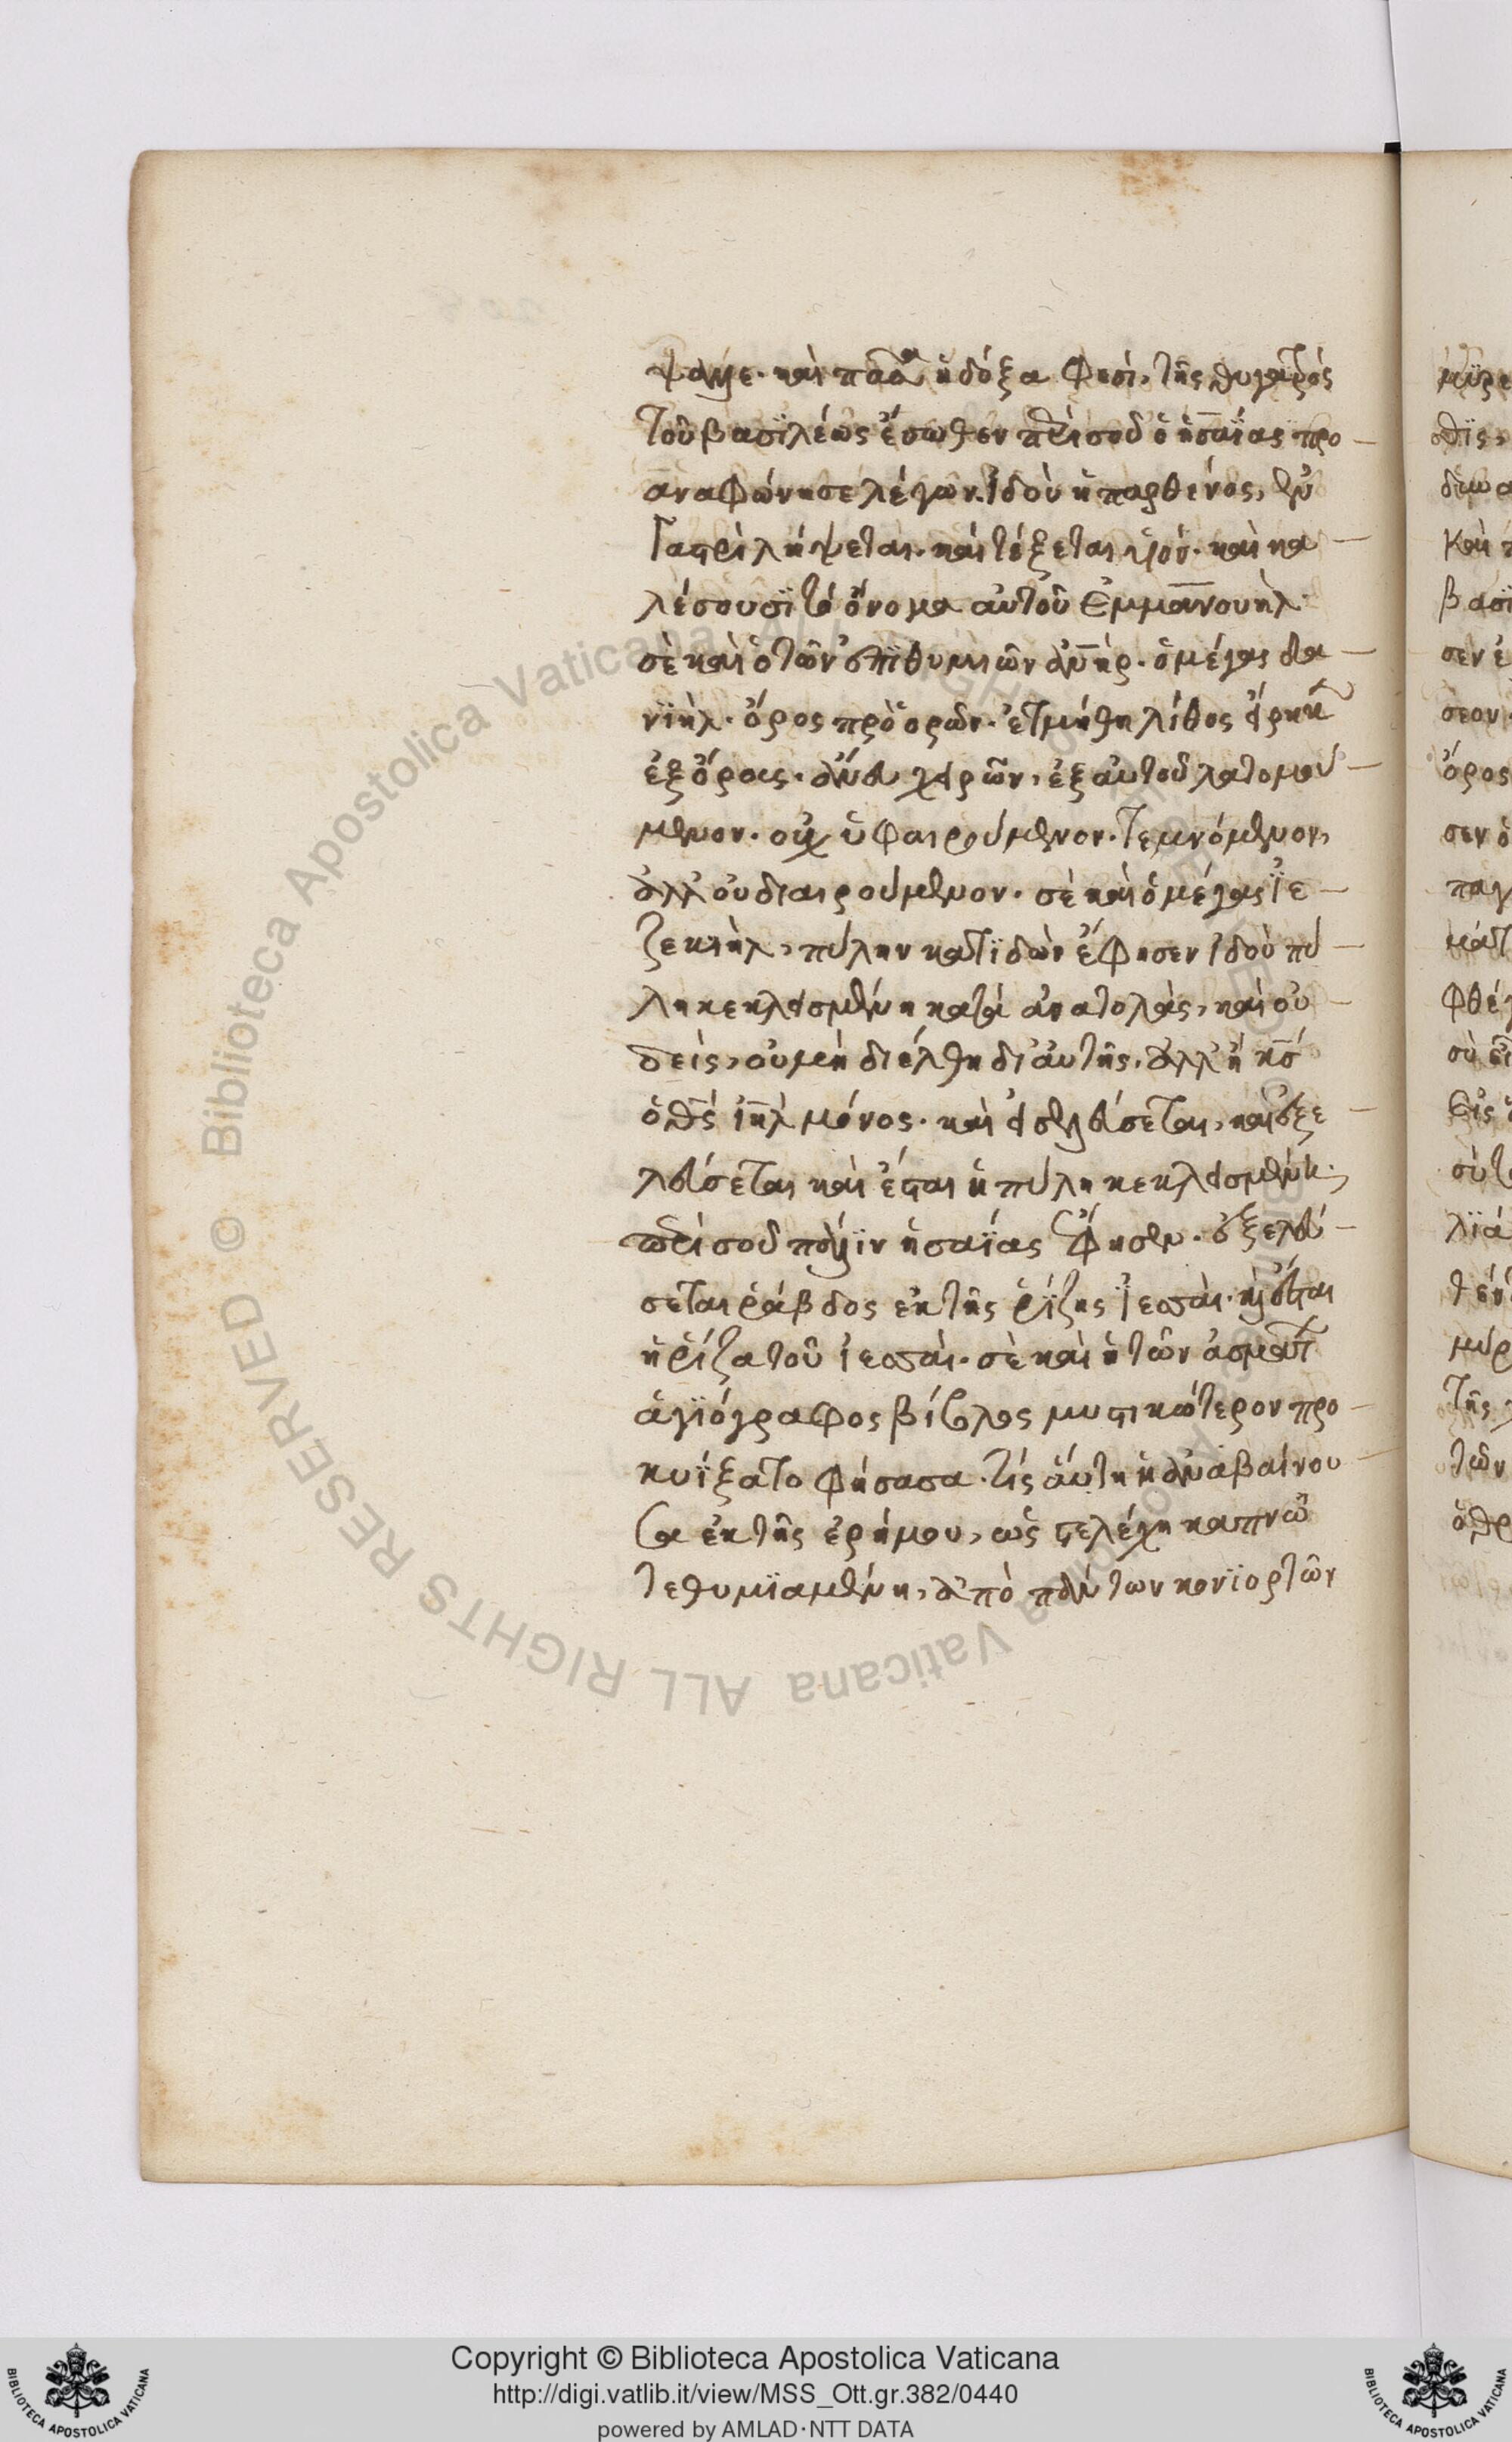 ψαλλε· καὶ πᾶσα ἡ δόξα φεσί, τῆς θυγατρός
τοῦ βασϊλέως ἔσωθεν περί σοῦ ὁ ἡσαΐας προ
αναφώνησε λέγων. Ἰδοὺ ἡ παρθένος, ἐν
γαστρὶ λήψεται. καὶ τέξεται υἱόν. καὶ κα
λέσουσϊ τὸ ὄνομα αὐτοῦ Ἐμμανουήλ·
σὲ καὶ ὁ τῶν ἐπϊθυμιῶν ἀνὴρ. ὁ μέγας δα
νϊὴλ. ὄρος πρὸορῶν. ἐτμήθη λίθος εἴρηκε
ἐξ ὄρους. ἄνευ χειρῶν, ἐξ αὐτοῦ λατομού
μενον. οὐχ ὑφαιρούμενον. τεμνόμενον,
ἀλλ' οὐ διαιρούμενον. σὲ καὶ ὁ μέγας ἰε
ζεκιὴλ, πύλην κατϊδὼν ἔφησεν ἰδοὺ πύ
λη κεκλεισμένη κατὰ ἀνατολὰς, καὶ οὐ
δεὶς, οὐ μὴ διέλθη δι' αὐτῆς, ἀλλ' ἢ κς
ὁ θς ιηλ μόνος. καὶ εἰσελεύσεται, καὶ ἐξε
λεύσεται καὶ ἔσται ἡ πύλη κεκλεισμένη.
περί σοῦ πάλϊν ἡσαΐας ἔφησεν. ἐξελεύ
σεται ράβδος ἐκ τῆς ῥίζης Ἰεσσαὶ. καὶ ἔσται
ἡ ῥίζα τοῦ ἰεσσαὶ. σὲ καὶ ἡ τῶν ἀσμάτ
ἁγϊόγραφος βίβλος μυστικώτερον προ
κυΐξατο φήσασα. τίς ἄυτη ἡ ἀναβαίνου
σα ἐκ τῆς ἐρήμου, ὡς στελέχη καπνοῦ
τεθυμϊαμένη, ἀπὸ πάντων κονϊορτῶν
Copyright © Biblioteca Apostolica Vaticana
http://digi.vatlib.it/view/MSS_Ott.gr.382/0440
powered by AMLAD·NTT DATA